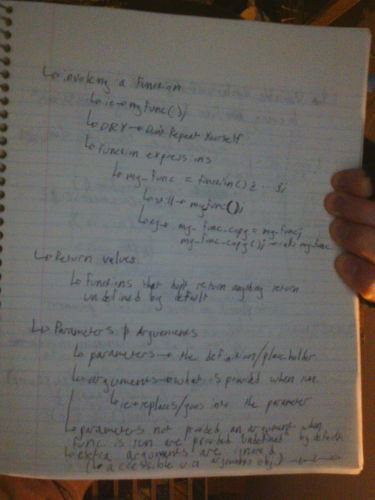 ↳ invoking a function
↳ ie → myFunc();
↳ DRY → Don't Repeat Yourself
↳ function expressions
↳ my_func = function() { ... };
↳ still → my_func();
↳ eg → my_func_copy = my_func;
my_func_copy(); → calls my_func
↳ Return values:
↳ Functions that don't return anything return
undefined by default
↳ Parameters & Arguements
↳ parameters → the definition/placeholder
↳ arguements → what is provided when run
↳ ie → replaces/goes into the parameter
↳ parameters not provided an argument when
func is run are provided undefined by default
↳ extra arguments are ignored
(↳ accessible via arguments obj)